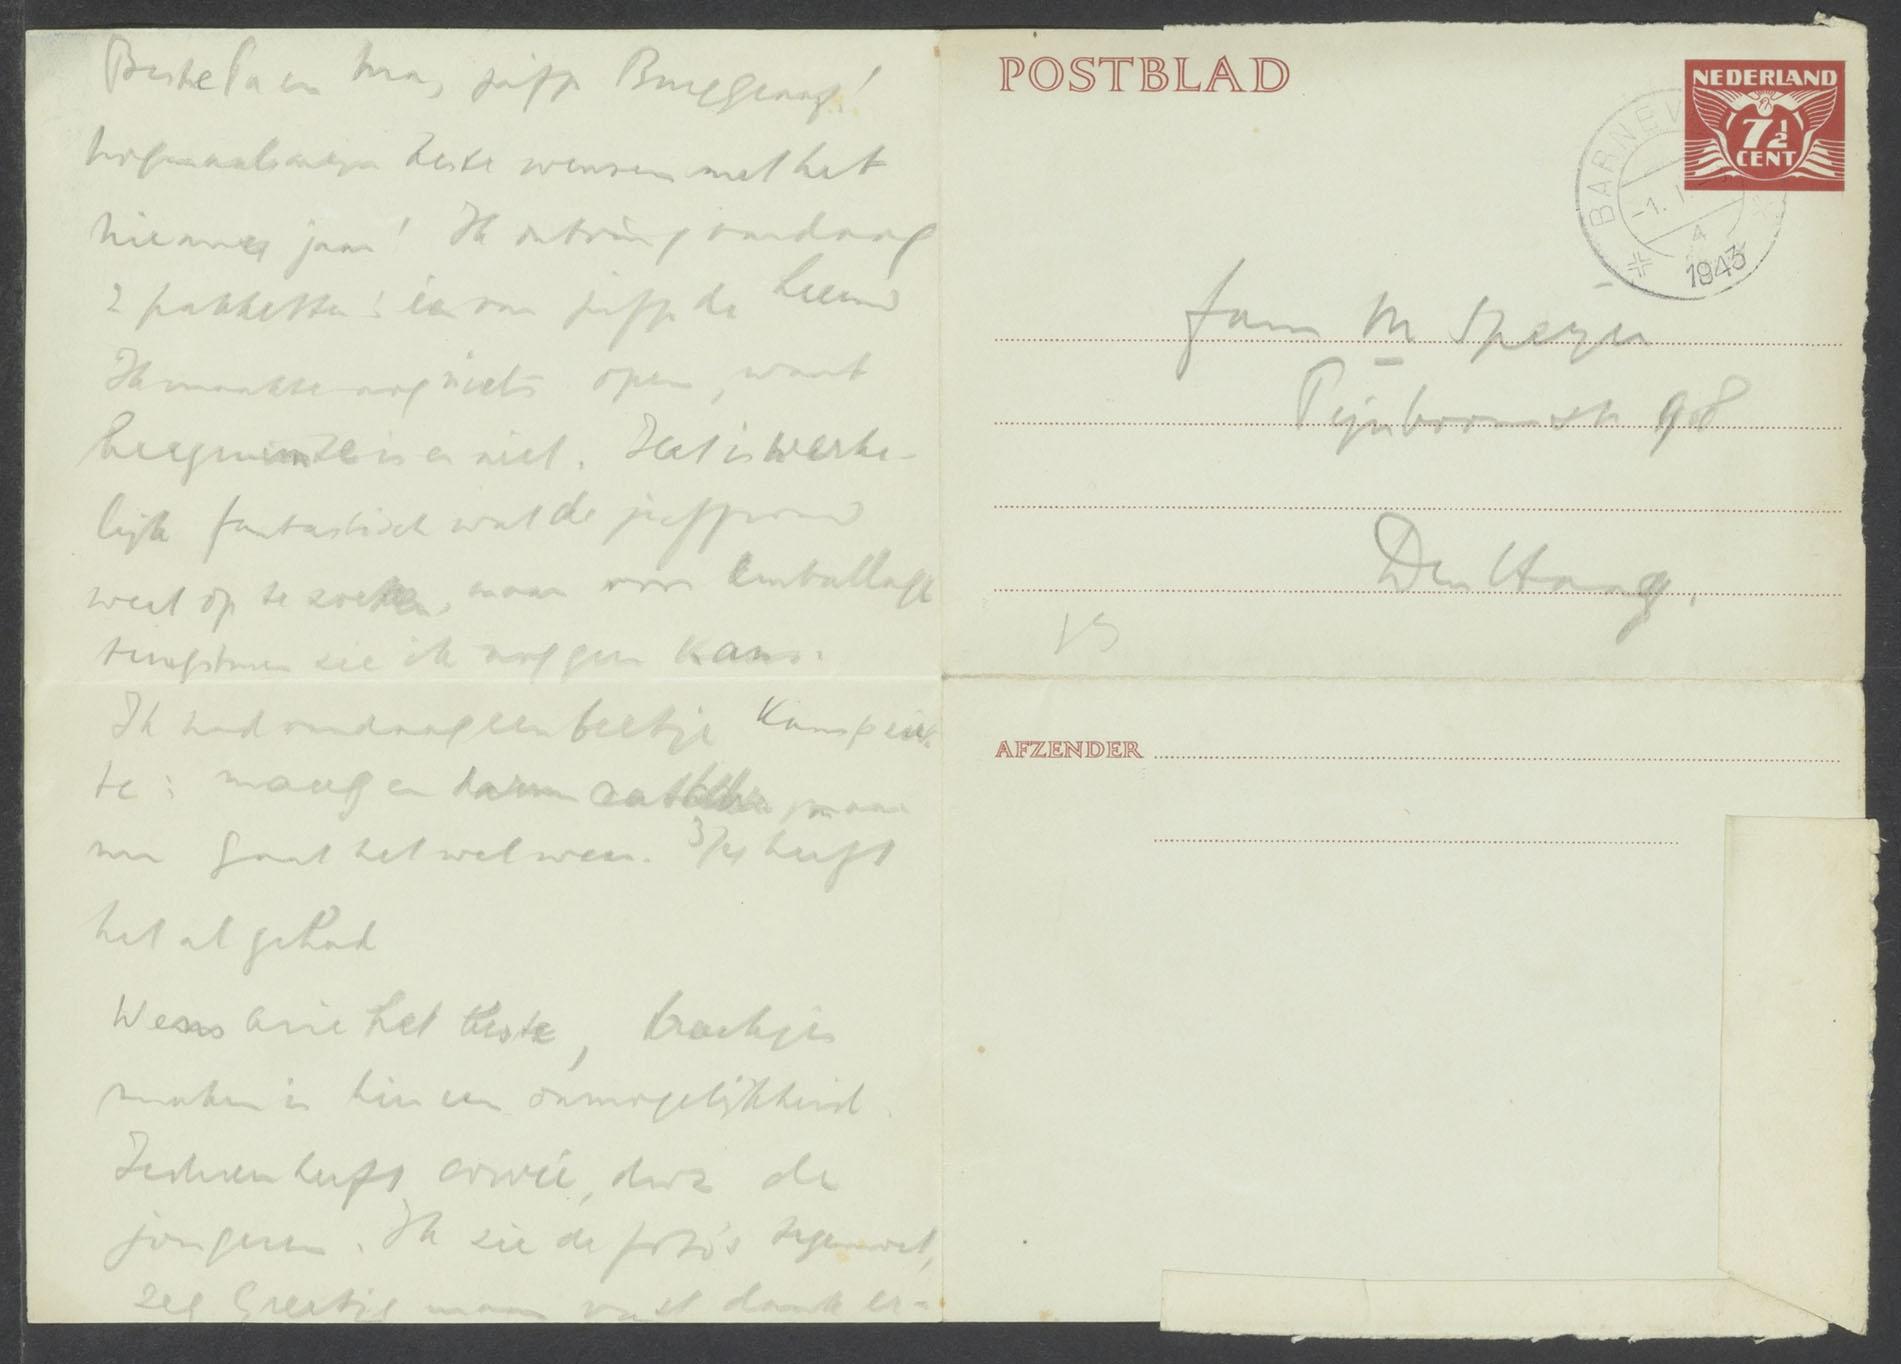 Beste Pa en Ma, juffr Bruggraaf!
nogmaals mijn beste wensen met het
nieuwe jaar! Ik ontving vandaag
2 pakketten: een van juffr de
Ik maakte nog niets open, want
is er niet. Het is werke-
lijk fantastisch wat de juffrouw
weet op te zoeken, maar voor emballage
zie ik nog geen kans.
Ik had vandaag een beetje
te: maag en darm maar
nu gaat het wel weer. 3/4 heeft
het al gehad
Wens Arie het beste,
maken is hier een onmogelijkheid.
Iedereen heeft corvée, dus de
jongeren. Ik zie de foto's tegemoet,
zeg Greetje maar vast dank er-
POSTBLAD
NEDERLAND
7½
CENT
BARNEV
-1. I
4
1943
fam M Speyer
Pijnboomstr 98
Den Haag.
AFZENDER